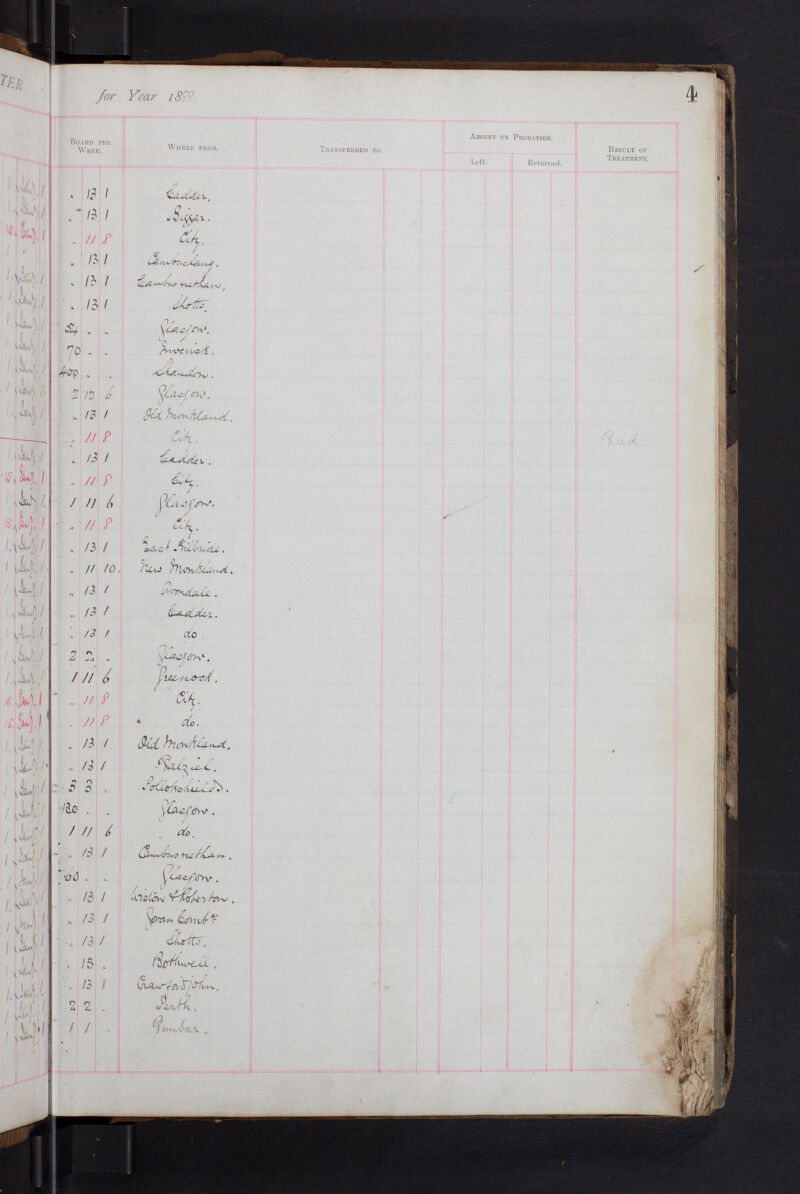 TER
for Year 1888.
4
BOARD PER WEEK.
WHERE FROM.
TRANSFERRED TO.
ABSENT ON PROBATION.
Left.
Returned.
RESULT OF TREATMENT.
" 13 1 Cadder.
" 13 1 Biggar.
" 11 8 City.
" 13 1 Cambuslang.
" 13 1 Cambusnethan.
" 13 1 Shotts.
54 " " Glasgow.
70 " " Inveresk.
400 " " Shandon.
2 12 6 Glasgow.
" 13 1 Old Monkland.
" 11 8 City. Died
" 13 1 Cadder.
" 11 8 City.
1 11 6 Glasgow.
" 11 8 City.
" 13 1 East Kilbride.
" 11 10. New Monkland.
" 13 1 Avondale.
" 13 1 Cadder.
" 13 1 do.
2 2 " Glasgow.
1 11 6 Greenock.
" 11 8 City.
" 11 8 do.
" 13 1 Old Monkland.
" 13 1 Dalziel.
3 3 " Pollokshields.
Glasgow.
1 11 6 do.
" 13 1 Cambusnethan.
60 " " Glasgow.
" 13 1 Wiston & Roberton.
" 13 1 Govan Combn
" 13 1 Shotts.
" 15 " Bothwell.
" 13 1 Crawfordjohn.
2 2 " Perth.
1 1 " Dunbar.